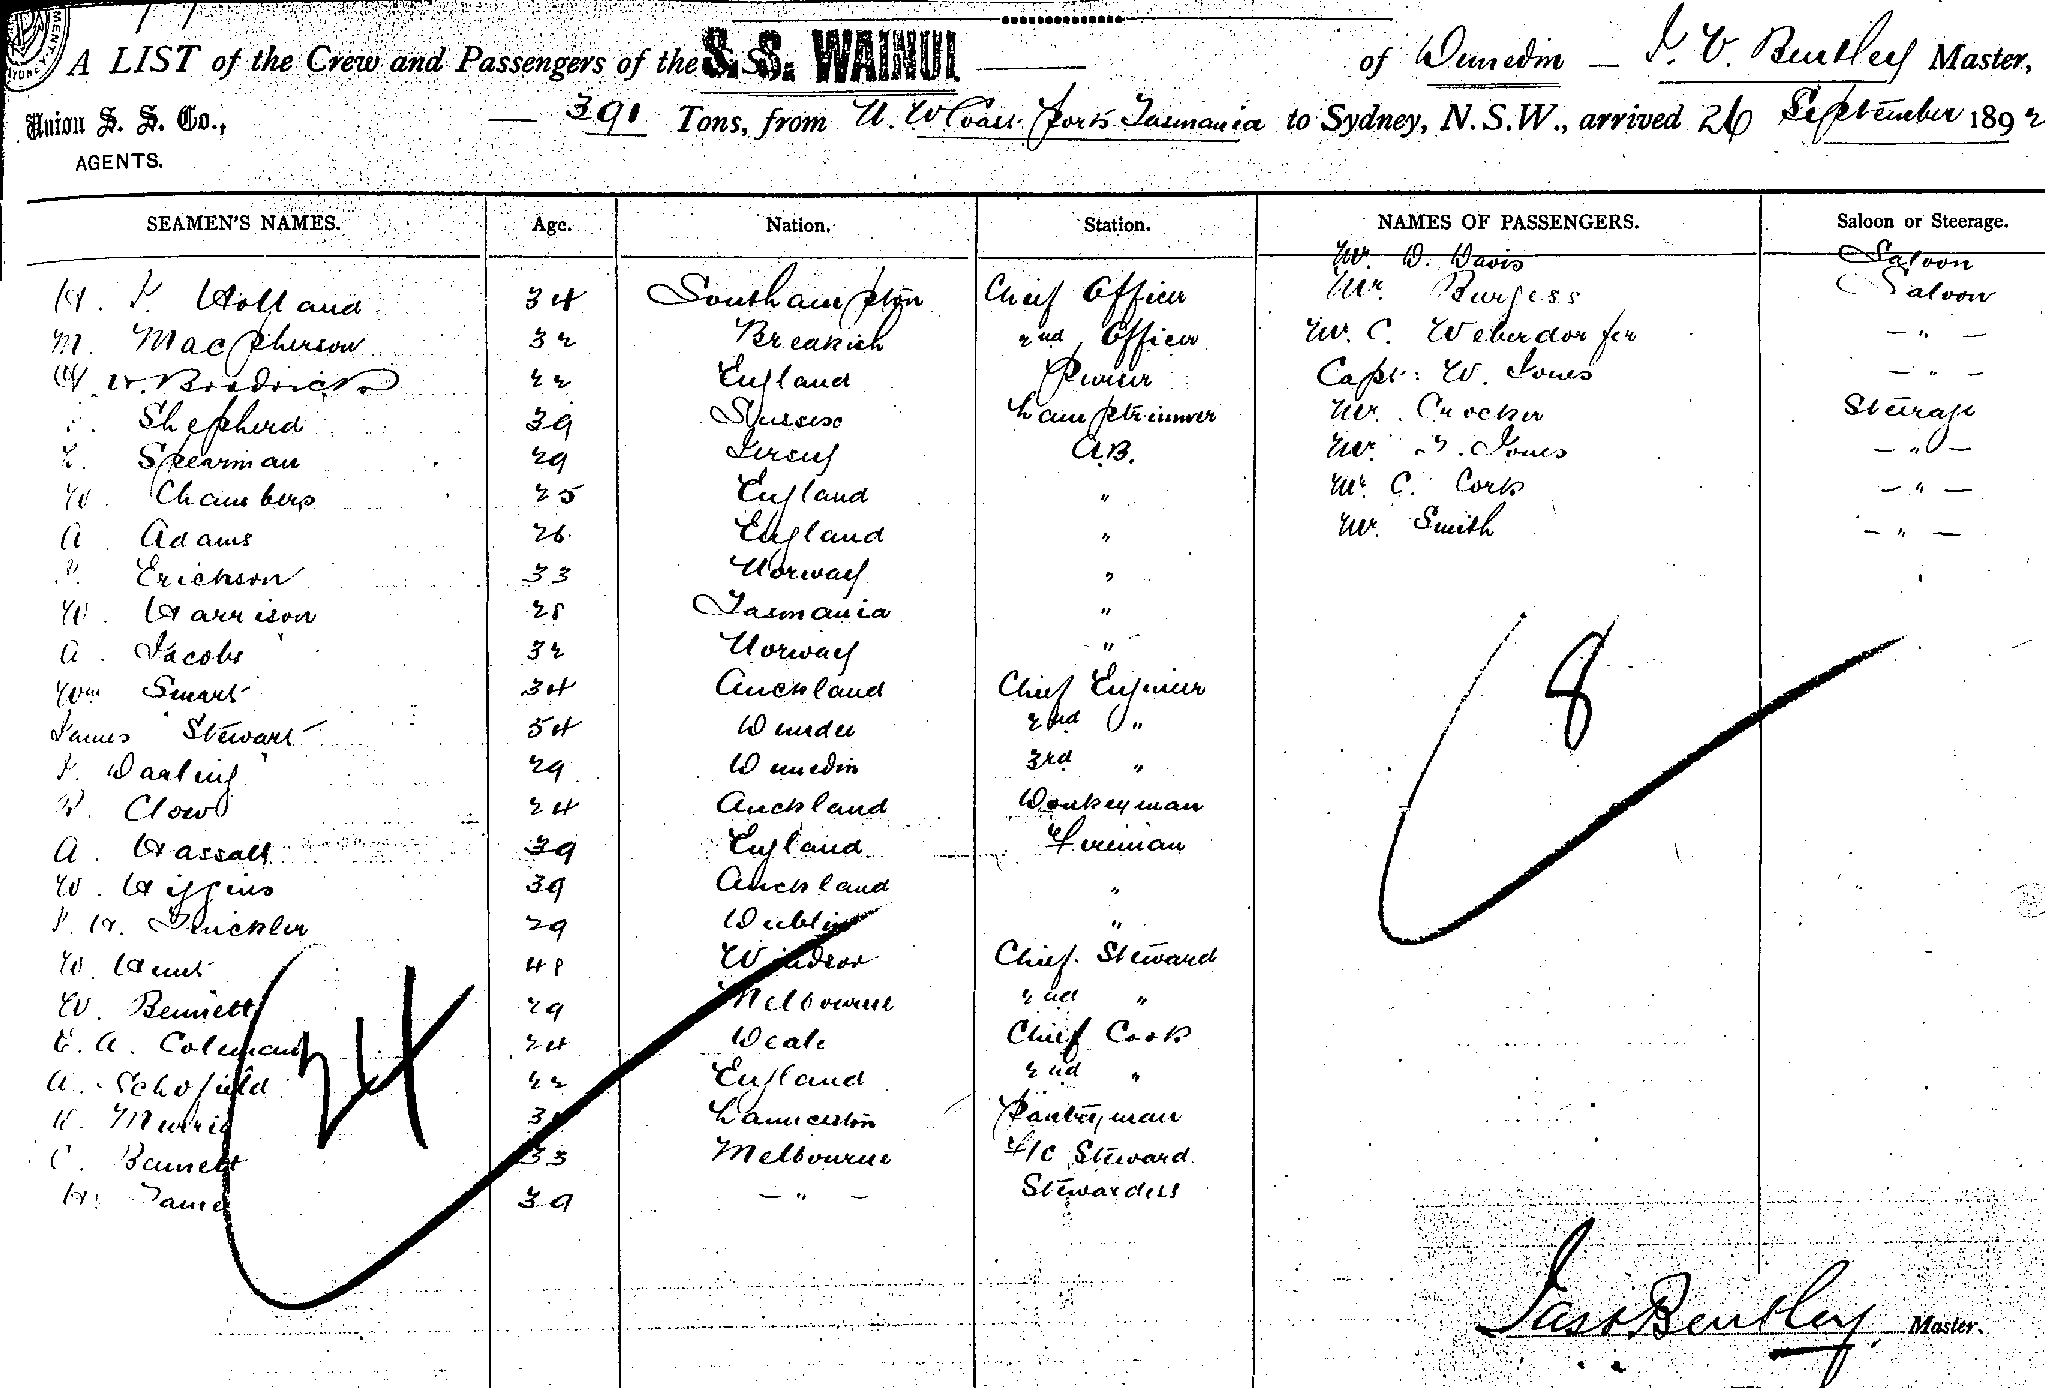 A LIST of the Crew and Passengers of the S. S. WAINUI of Dunedin — J. V. Bentley Master,
Union S. S. Co., AGENTS.
— 391 Tons, from N. W Coast Ports Tasmania to Sydney, N.S.W., arrived 26 September 1892
SEAMEN'S NAMES. Age. Nation. Station. NAMES OF PASSENGERS. Saloon or Steerage.
Mr. D. Davis Saloon
H. J. Holland 34 Southampton Chief Officer Mr. Burgess Saloon
M. MacPherson 32 Breakish 2nd Officer Mr. C. Weberdorfer — " —
W. Brodrick 22 England Purser Capt: W. Jones — " —
Shepherd 39 Sussex Lamptrimmer Mr. Crocker Steerage
Spearman 29 Jersey A.B. Mr. Jones — " —
W. Chambers 25 England " Mr. C. Cork — " —
A Adams 26 England " Mr. Smith — " —
Erickson 33 Norway "
W. Harrison 28 Tasmania "
A. Jacobs 32 Norway "
Wm Smart 34 Auckland Chief Engineer
James Stewart 54 Dundee 2nd "
J. Darling 29 Dunedin 3rd "
Clow 24 Auckland Donkeyman
A. Hassall 39 England Fireman
W. Higgins 39 Auckland "
J. H. 29 Dublin "
W. Hunt 48 Windsor Chief Steward
W. Bennett 29 Melbourne 2nd "
E. A. Coleman 24 Deal Chief Cook
A. Schofield 22 England 2nd "
Launceston Pantryman
C. Barnett 33 Melbourne F/C Steward
H. 39 — " — Stewardess
24
8
Jas V Bentley Master.